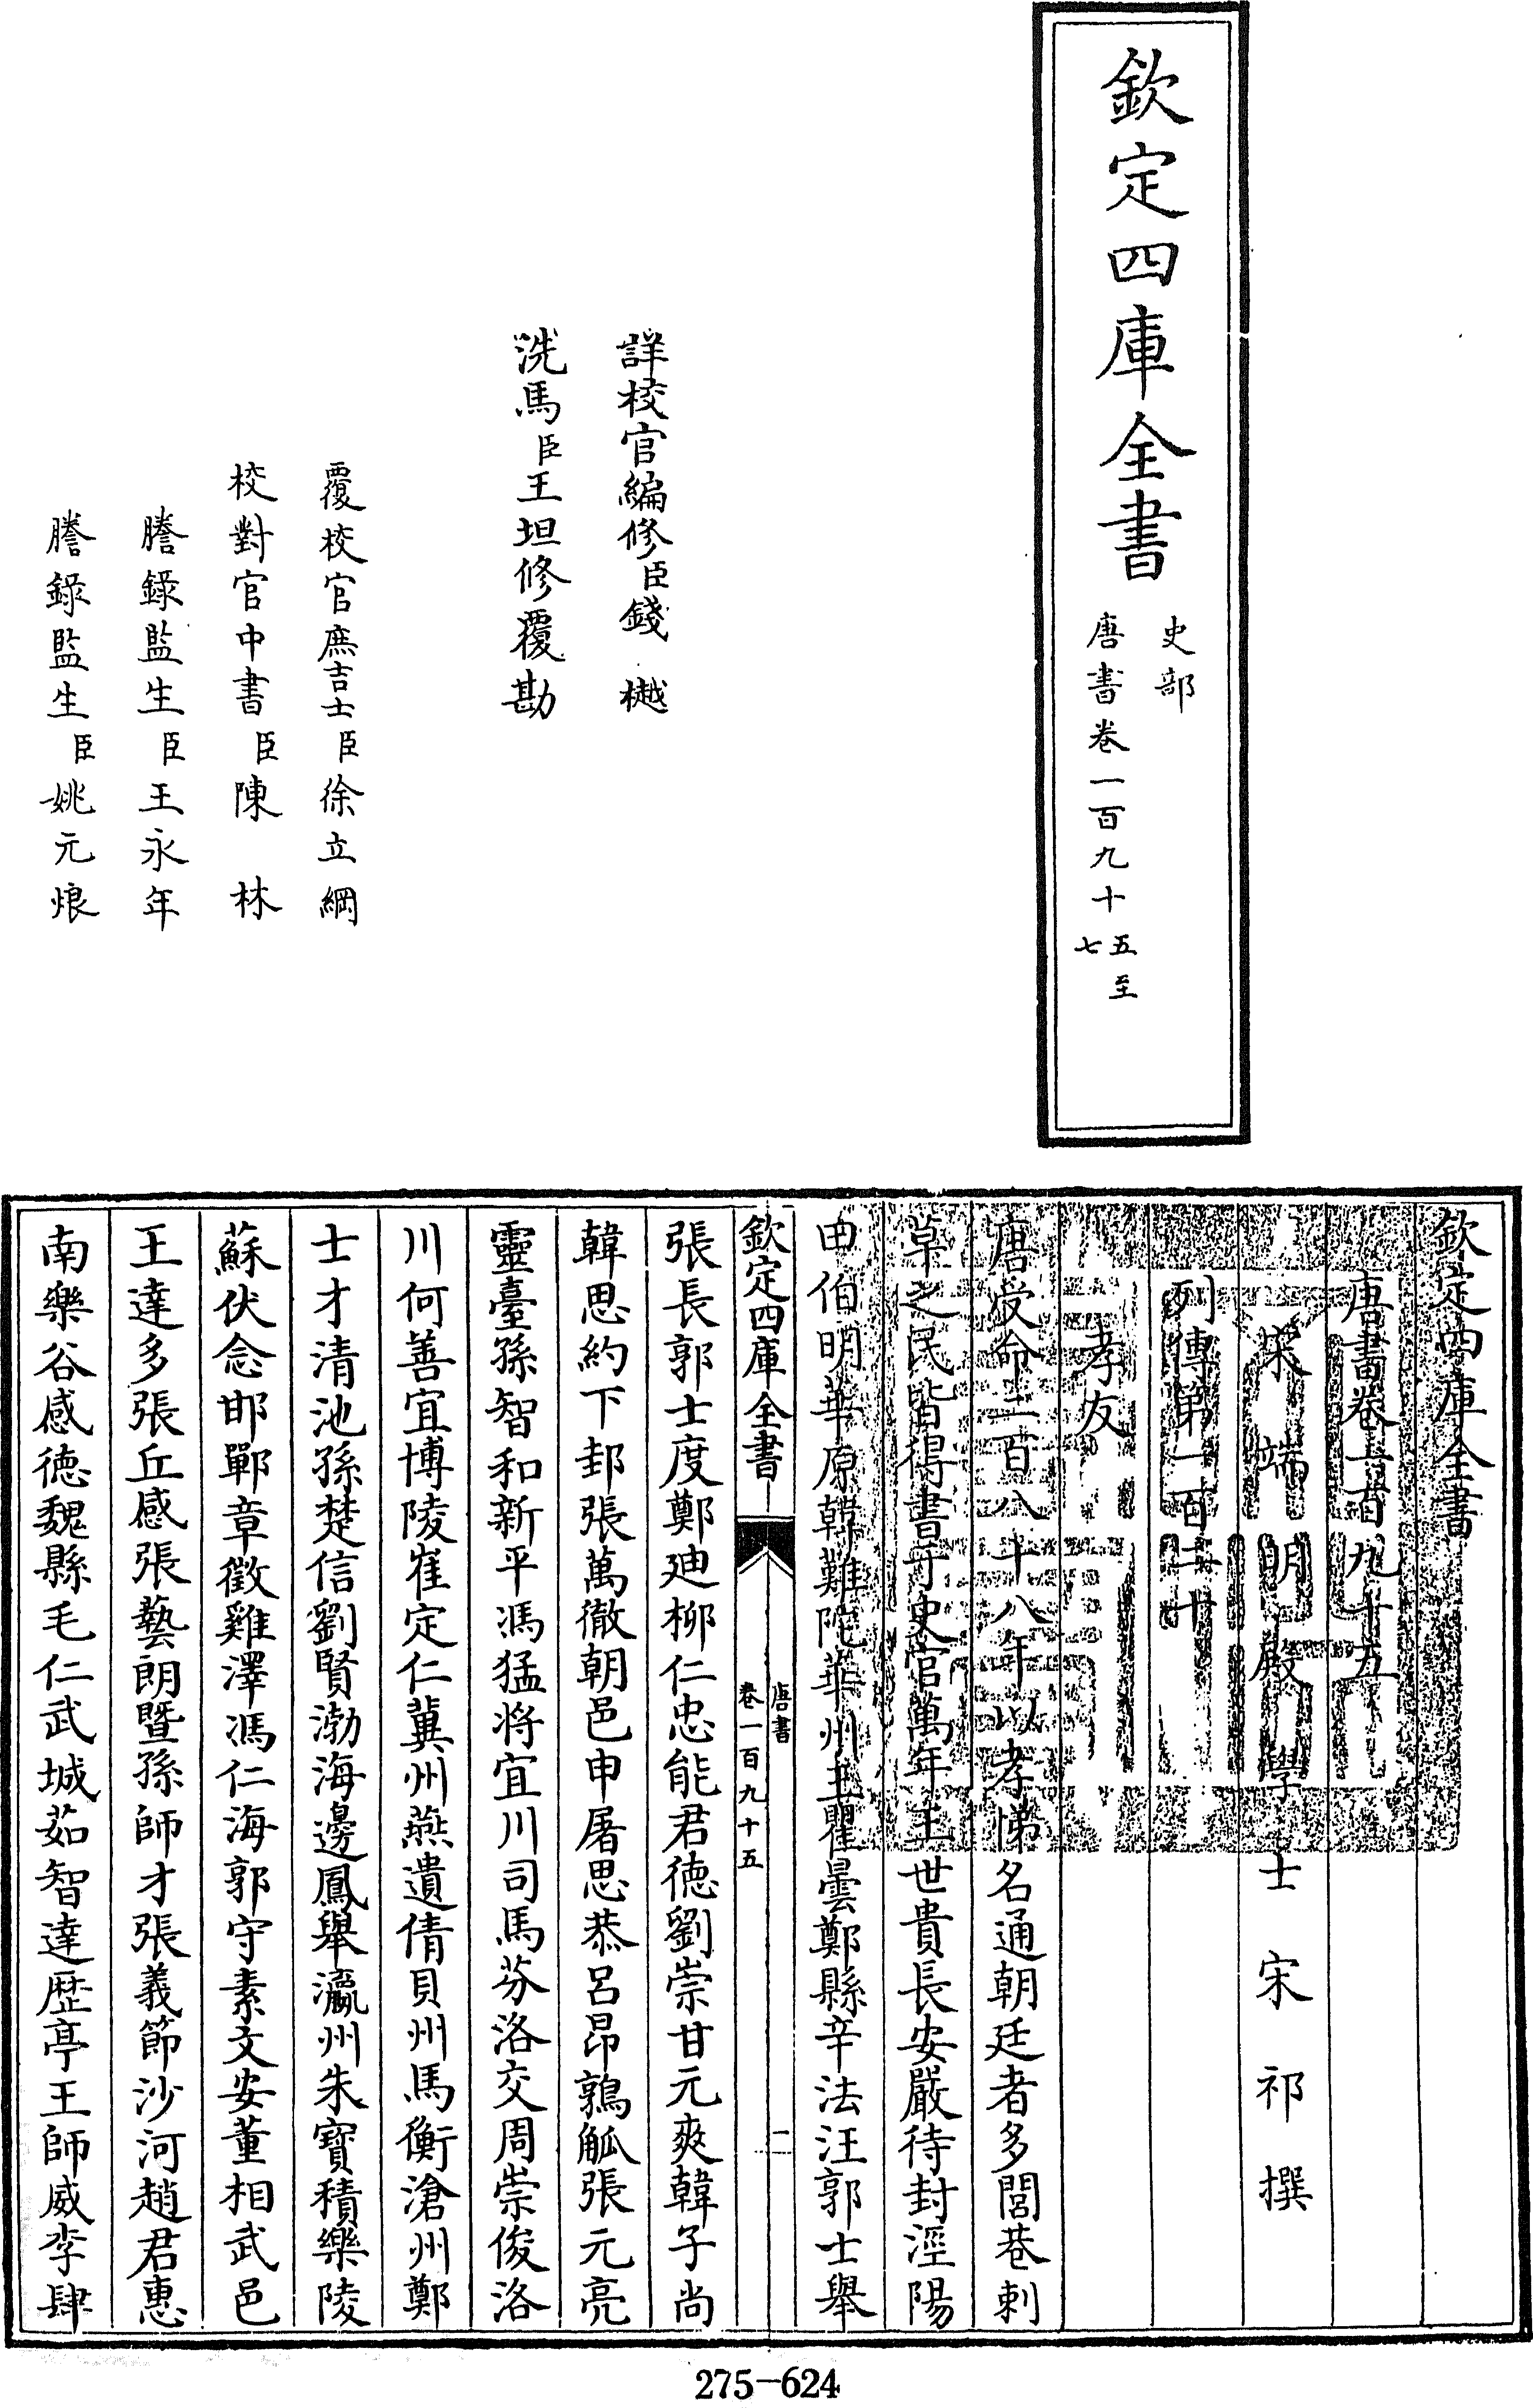 欽定四庫全書
史部
唐書卷一百九十五至
七
詳校官編修臣錢樾
洗馬臣王坦修覆勘
覆校官庶吉士臣徐立綱
校對官中書臣陳林
謄錄監生臣王永年
謄錄監生臣姚元烺
欽定四庫全書
唐書卷一百九十五
宋端明殿學士宋祁撰
列傳第一百二十
孝友
唐受命二百八十八年以孝悌名通朝廷者多閭巷刺
草之民皆得書于史官萬年王世貴長安嚴待封涇陽
田伯明華原韓難陀華州王瞿曇鄭縣辛法汪郭士舉
欽定四庫全書
唐書
卷一百九十五
二
張長郭士度鄭廸柳仁忠能君徳劉崇甘元爽韓子尚
韓思約下邽張萬徹朝邑申屠思恭呂昂鶉觚張元亮
靈臺孫智和新平馮猛将宜川司馬芬洛交周崇俊洛
川何善宜博陵崔定仁冀州燕遺倩貝州馬衡滄州鄭
士才清池孫楚信劉賢渤海邊鳳舉瀛州朱寶積樂陵
蘇伏念邯鄲章徴雞澤馮仁海郭守素文安董相武邑
王達多張丘感張藝朗暨孫師才張義節沙河趙君惠
南樂谷感徳魏縣毛仁武城茹智達歴亭王師威李肆
275-624